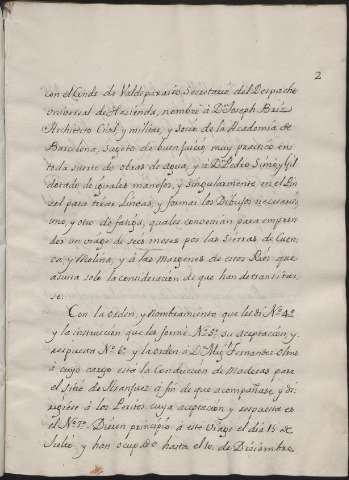 2
con el Conde de Valdeparaiso Secretario del Despacho
Universal de Hacienda, nombré à Dn. Joseph
Architeto Civil y militar, y socio de la Academia de
Barcelona, sugeto de buen juicio, muy practico en
toda suerte de obras de agua, y à Dn. Pedro Simo, y Gil
dotado de iguales manejos, y singularmente en el Pin
zel para tirar Lineas, y formar los Dibujos necesarios
uno, y otro de fatiga, quales convenian para empren
der un viage de seis meses por las Sierras de Cuen
ca y Molina, y à las margenes de otros Rios que
asusta solo la consideracion de que han de transitar
se.
Con la orden, y Nombramiento que les di No. 4o.
y la instruccion que les formé No. 5o. su aceptacion, y
respuesta No. 6o. y la orden à Dn. Migl. Fernandez
à cuyo cargo està la Conduccion de Maderas para
el Sitio de Aranjuez à fin de que acompañase, y di
rigiese à los Peritos cuya aceptacion y respuesta es
el No. 7o. Dieron principio à este Viage el dia 15 de
Julio y han ocupado hasta el 10. de Diciembre